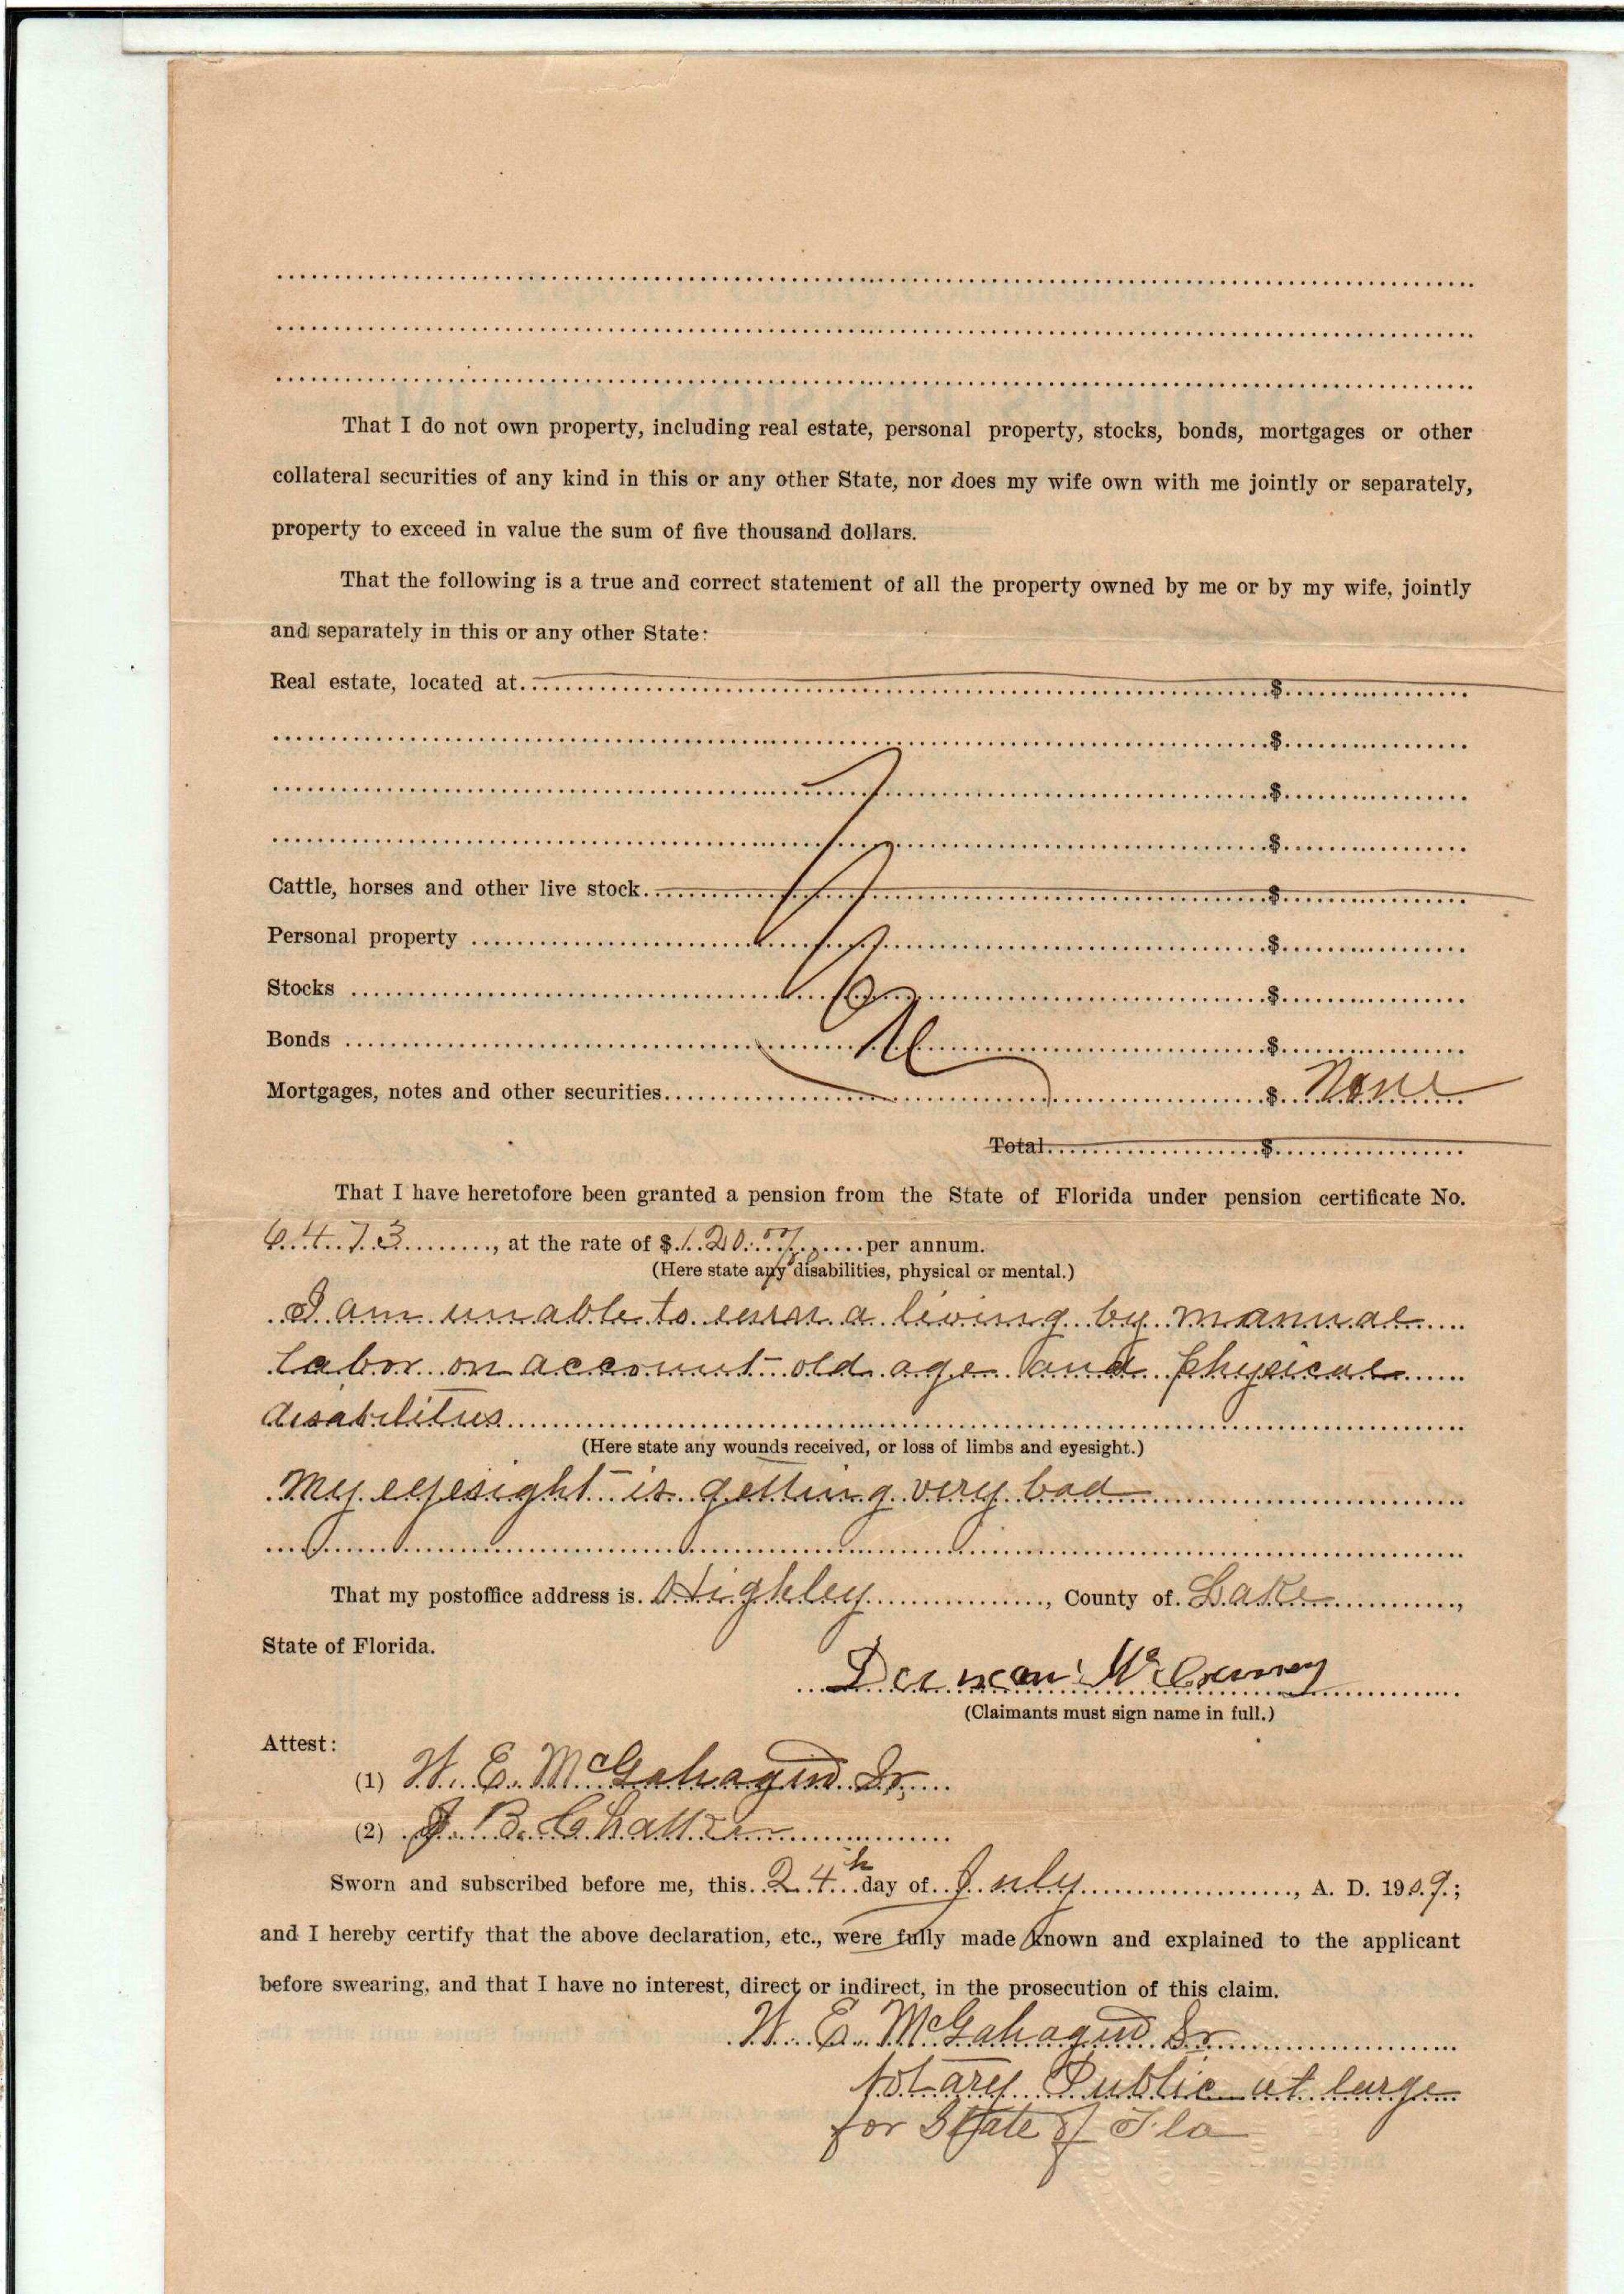 That I do not own property, including real estate, personal property, stocks, bonds, mortgages or other
collateral securities of any kind in this or any other State, nor does my wife own with me jointly or separately,
property to exceed in value the sum of five thousand dollars.
That the following is a true and correct statement of all the property owned by me or by my wife, jointly
and separately in this or any other State:
Real estate, located at $
$
$
$
Cattle, horses and other live stock. $
Personal property $
Stocks $
Bonds $
Mortgages, notes and other securities $ None
Total $
That I have heretofore been granted a pension from the State of Florida under pension certificate No.
6473, at the rate of $120 per annum.
(Here state any disabilities, physical or mental.)
I am unable to earn a living by manual
labor on account old age and physical
disabilities
(Here state any wounds received, or loss of limbs and eyesight.)
My eyesight is getting very bad
That my postoffice address is. Highley, County of. Lake,
State of Florida.
Duncan
(Claimants must sign name in full.)
Attest:
(1) W. E. McGahagin Sr.
(2) J. B. Chalker
Sworn and subscribed before me, this 24th day of July, A. D. 1909.;
and I hereby certify that the above declaration, etc., were fully made known and explained to the applicant
before swearing, and that I have no interest, direct or indirect, in the prosecution of this claim.
W. E. McGahagin Sr
Notary Public at large
for State of Fla